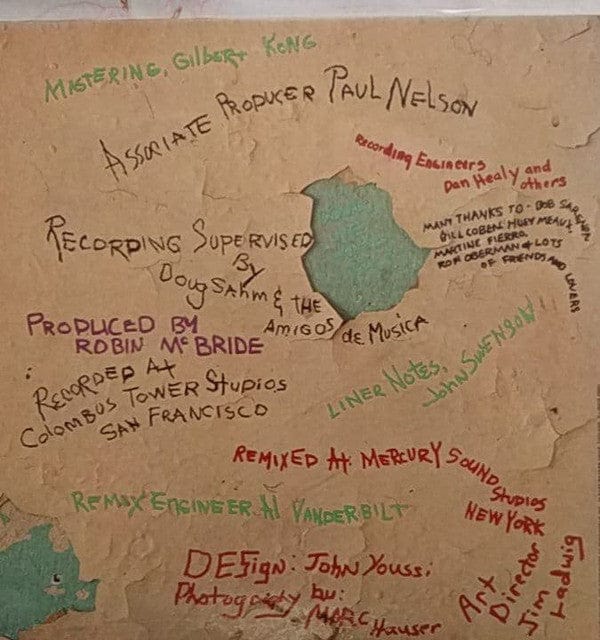 MASTERING, GILBERT KONG
ASSOCIATE PRODUCER PAUL NELSON
Recording Engineers
Dan Healy and
others
MANY THANKS TO - BOB SARENPA
BILL COBEN, HUEY MEAUX
MARTINE FIERRO,
RON OBERMAN & LOTS
OF FRIENDS AND LOVERS
RECORDING SUPERVISED
By
Doug SAHM & THE
AMIGOS de MUSICA
PRODUCED BY
ROBIN McBRIDE
RECORDED At
Colombus TOWER StuDIOS
SAN FRANCISCO
LINER NOTES,
JOHN SWENSON
REMIXED At MERCURY SOUND
STuDIOS
NEW YORK
REMIX ENGINEER Al VANDERBILT
DESign: JOHN YOUSSi
Photography by:
MARC Hauser
Art
Director
Jim
Ladwig